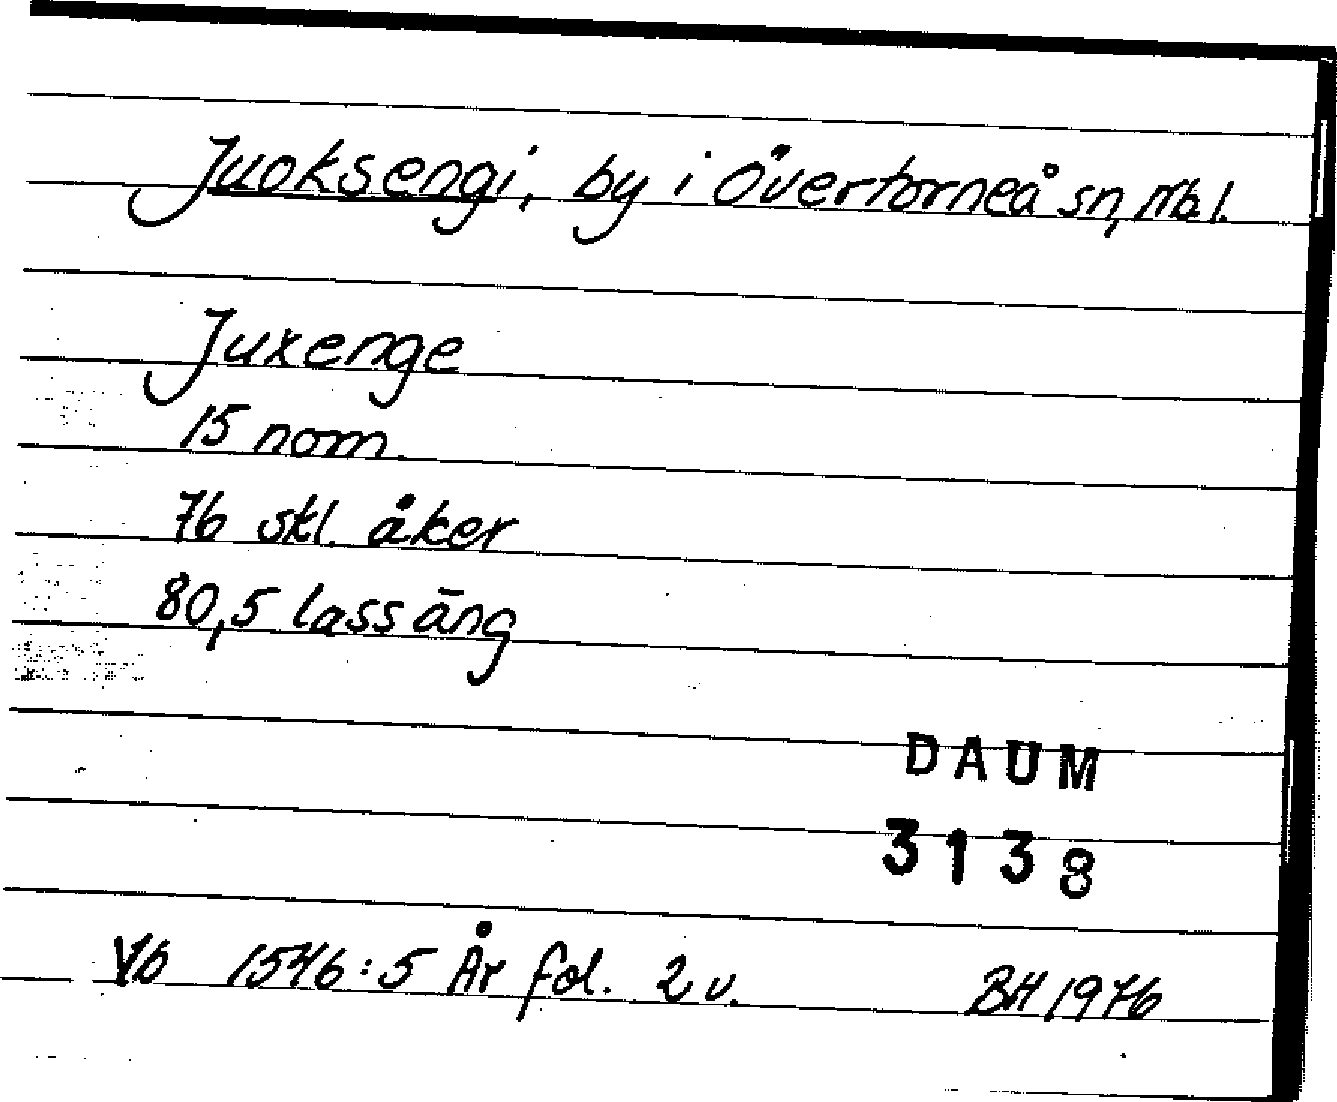 Juoksengi, by i Övertorneå sn, Nb. l.
Juxenge
15 nom.
76 skl. åker
80,5 lass äng
DAUM
3138
Vb 1546:5 År fol. 2 v. BH 1976